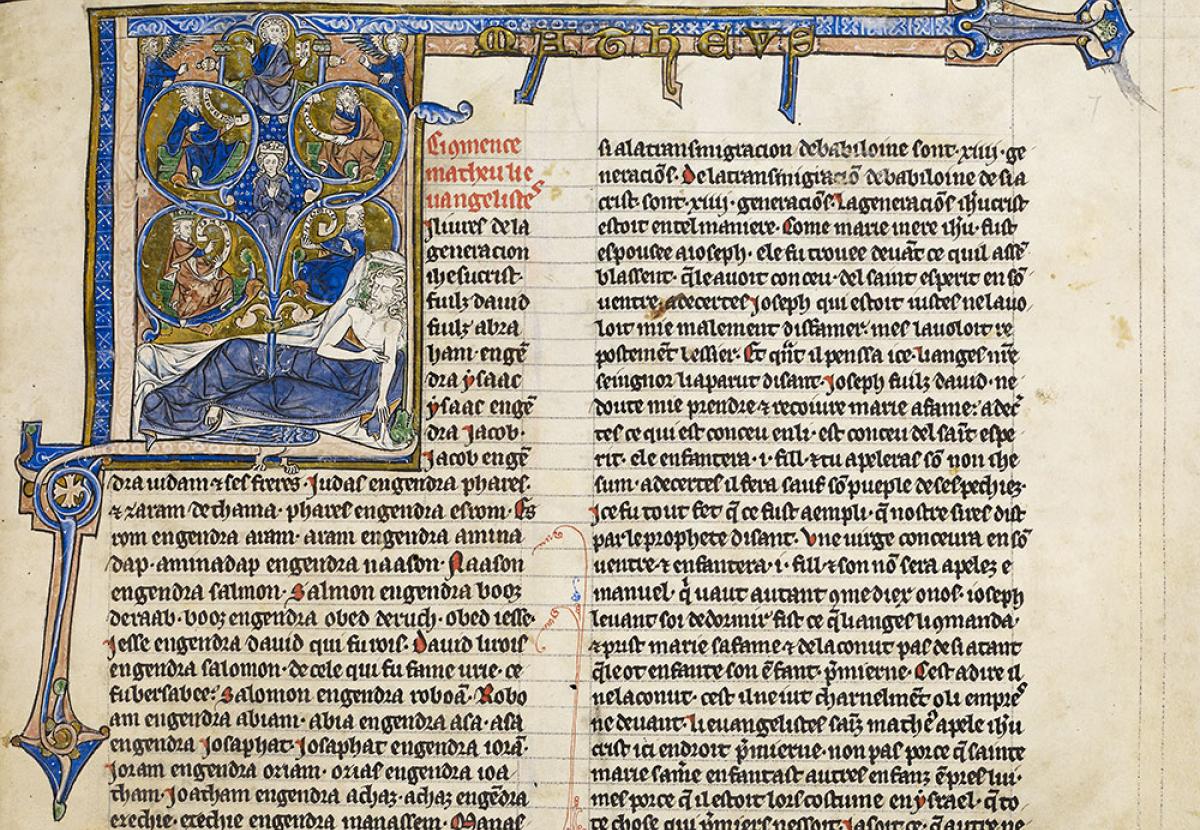 MATHEVS
Cõmence
matheu lie
uangeliste
li liures de la
generacion
ihesucrist·
fiulz dauid
fiulz abra
ham· engẽ
dra ysaac
ysaac engẽ
dra Jacob·
Jacob engẽ
dra iudam ⁊ ses freres· Judas engendra phares·
⁊ zaram de thama· phares engendra esrom· Es
rom engendra aram· aram engendra amina
dap· aminadap engendra naason· Naason
engendra salmon· Salmon engendra booz
de raab· booz engendra obed de ruth· obed iesse·
Jesse engendra dauid qui fu rois· Dauid li rois
engendra salomon· de cele qui fu fame urie· ce
fu bersabee· Salomon engendra roboã· Robo
am engendra abiam· abia engendra asa· asa
engendra Josaphat· Josaphat engendra iorã·
Joram engendra oziam· ozias engendra ioa
tham· Joatham engendra achaz· achaz engẽdra
ezechie· ezechie engendra manassem· Manas
si a la transmigracion de babiloine sont· xiiii· ge
neraciõs· De la transmigraciõ de babiloine desi a
crist· sont· xiiii· generaciõs· La generaciõs ihũcrist
estoit en tel maniere· Come marie mere ihũ· fust
espousee a ioseph· ele fu trouee deuãt ce quil assẽ
blassent· q̃le auoit conceu· del saint esperit en sõ
uentre· adecertes Joseph qui estoit iustes ne lauo
loit mie malement diffamer· mes lauoloit re
postemẽt lessier· Et quãt il penssa ice· li anges nr̃e
seingnor li aparut disant· Joseph fiulz dauid· ne
doute mie prendre ⁊ receiure marie a fame· adec̃
tes ce qui est conceu en li· est conceu del saĩt espe
rit· ele enfantera· i· fill· ⁊ tu apeleras sõ non ihe
sum· adecertes il fera sauf sõ pueple de ses pechiez·
Ice fu tout fet q̃ ce fust aempli· q̃ nostre sires dist
par le prophete disant· Vne uirge conceura en sõ
uentre· ⁊ enfantera· i· fill· ⁊ son nõ sera apelez e
manuel· q̃ uaut autant 9me diex o nos· ioseph
leuant soi de dormir· fist ce q̃ li anges li 9manda·
⁊ prist marie sa fame ⁊ de la conut pas desi atant
q̃le ot enfante son ẽfant· p̃mierne· Cest a dire il
ne la conut· cest il ne iut charnelmẽt o li empres
ne deuant· li euangelistes saĩz matheˀ apele ihũ
crist ici endroit p̃mierne· non pas por ce q̃ sainte
marie saĩnte enfantast autres enfanz ẽpres lui·
mes por ce q̃ il estoit lors costume en ysrael· q̃ to
te chose qui p̃miers nessoit· Ja soit ce· q̃ autre ne